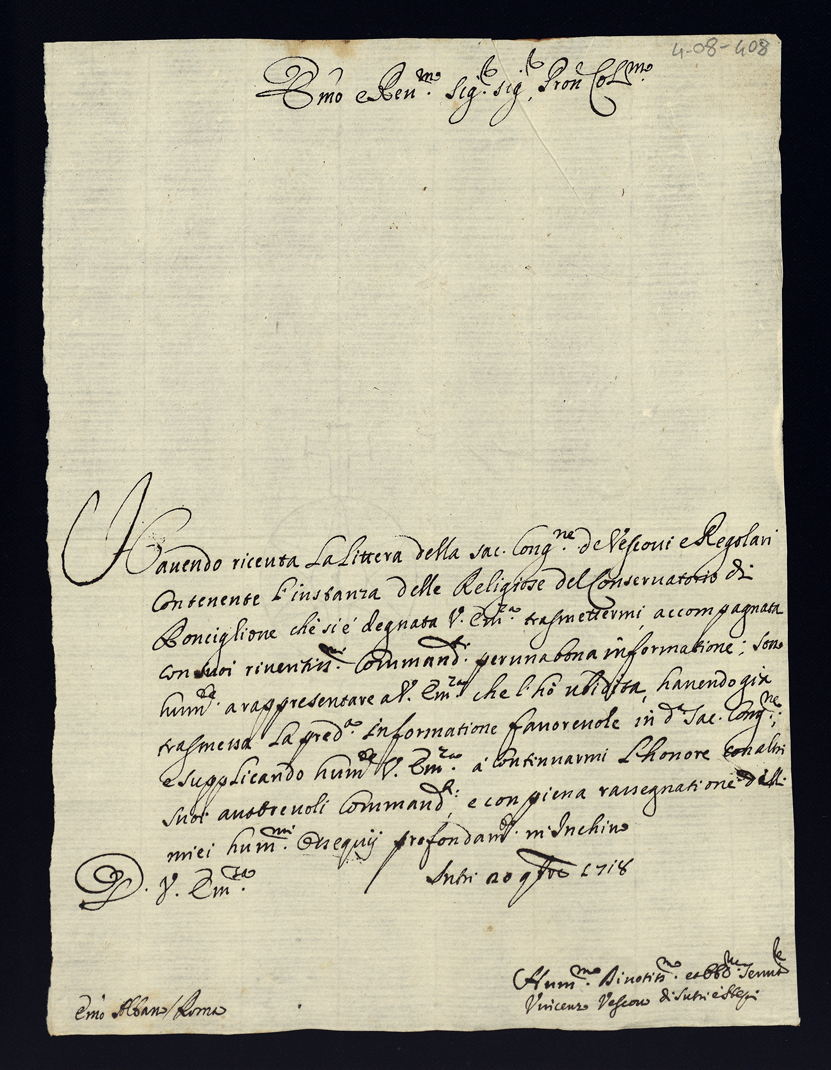 4-08-408
Emo e Reu.mo Sig.r Sig.r Pron Col.mo
Hauendo riceuta La Littera della Sac. Cong.ne de Vescoui e Regolari
Contenente l'instanza delle Religiose del Conseruatorio di
Ronciglione che si è degnata V. Em.za trasmettermi accompagnata
con suoi riueritis.mi Command.ti per una bona informatione; sono
hum.te a rappresentare a V. Em.za che l'hò ubidita, hauendo già
trasmessa La pred.a informatione fauoreuole in d.a Sac. Cong.ne;
e supplicando hum.te V. Em.za a continuarmi L'honore con altri
suoi autoreuoli Command.ti, e con piena rassegnatione delli
miei hum.mi Ossequij profondam.te m'Inchino
D. V. Em.za
Sutri 20 9bre 1718
Hum.mo Diuotis.mo et obb.mo Seruit.re
Vincenzo Vescouo di Sutri e Nepi
Emo Albani / Roma